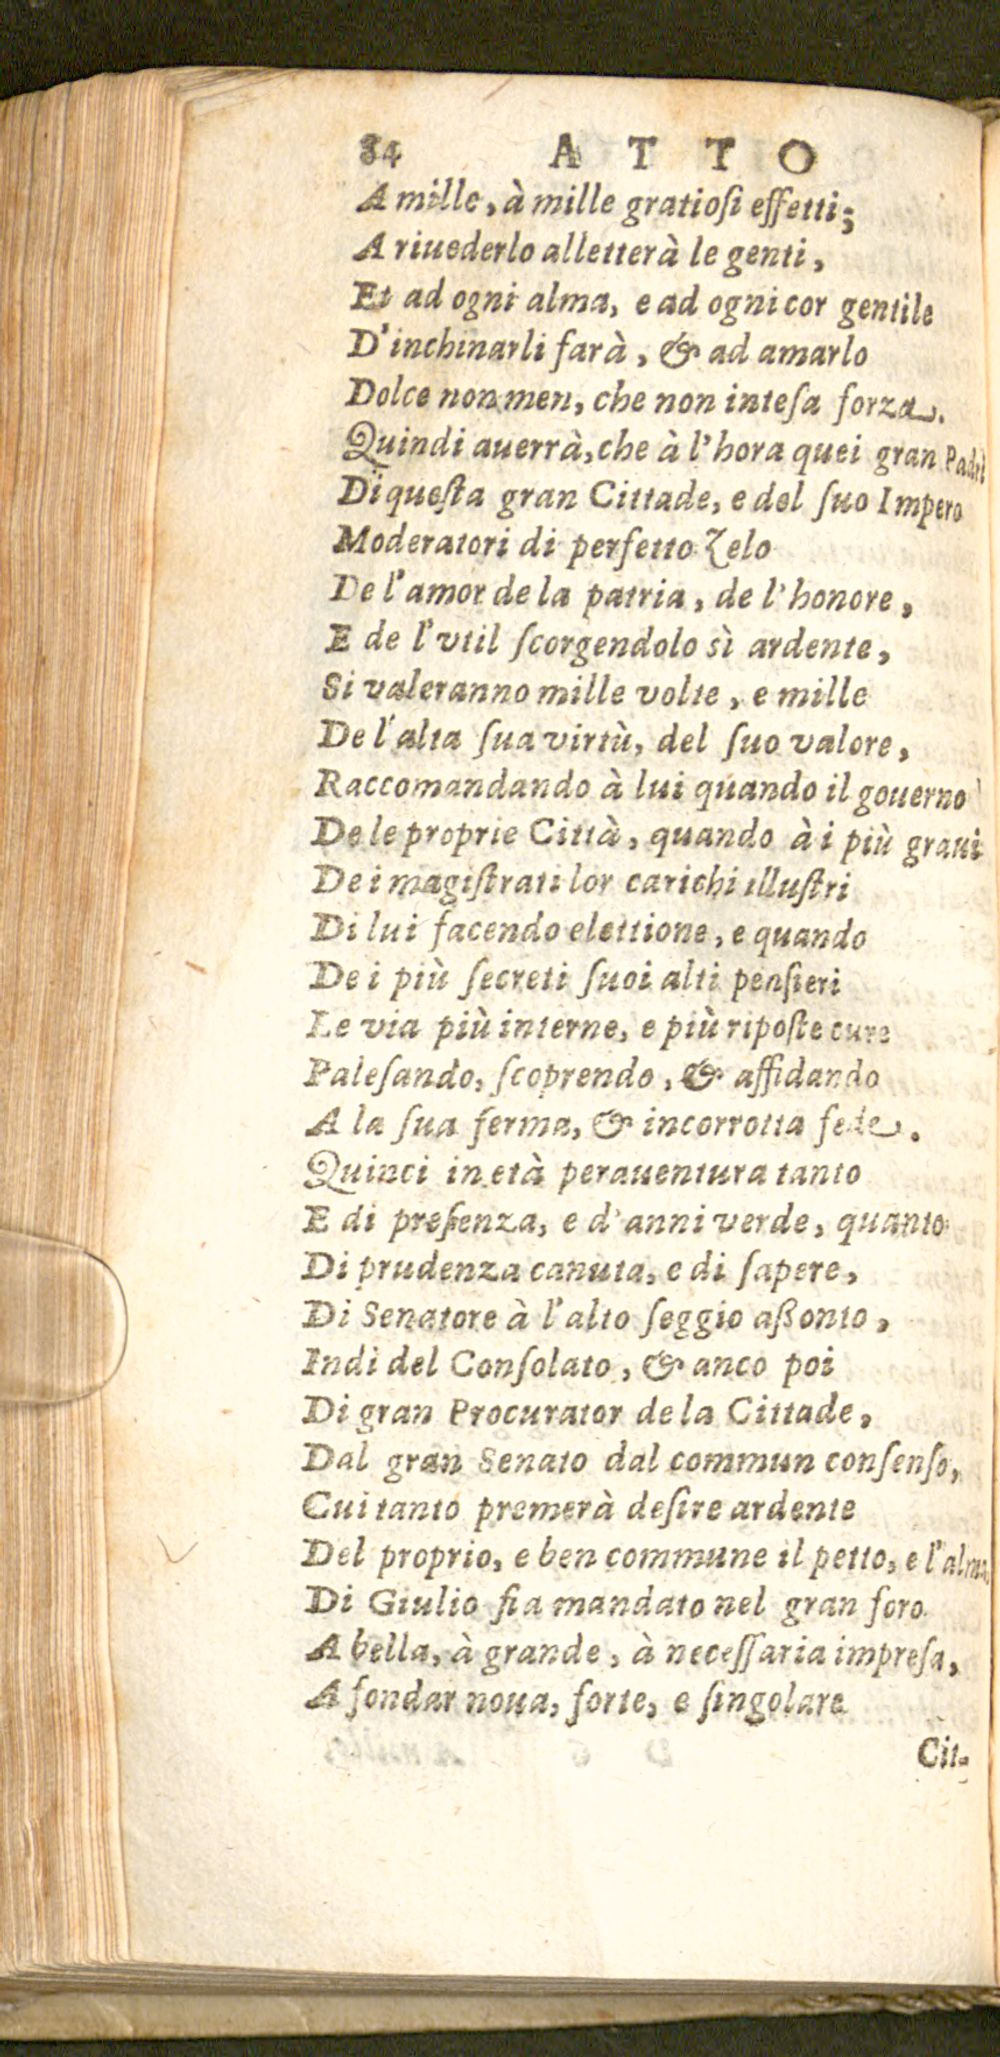 84 ATTO
A mille, à mille gratioſi effetti;
A riuederlo alletterà le genti,
Et ad ogni alma, e ad ogni cor gentile
D'inchinarli farà, & ad amarlo
Dolce non men, che non inteſa forza.
Quindi auerrà, che à l'hora quei gran Padri
Di queſta gran Cittade, e del ſuo Impero
Moderatori di perfetto Zelo
De l'amor de la patria, de l'honore,
E de l'vtil ſcorgendolo sì ardente,
Si valeranno mille volte, e mille
De l'alta ſua virtù, del ſuo valore,
Raccomandando à lui quando il gouerno
De le proprie Città, quando à i più graui
De i magiſtrati lor carichi illuſtri
Di lui facendo elettione, e quando
De i più ſecreti ſuoi alti penſieri
Le via più interne, e più ripoſte cure
Paleſando, ſcoprendo, & affidando
A la ſua ferma, & incorrotta fede.
Quinci in età perauentura tanto
E di preſenza, e d'anni verde, quanto
Di prudenza canuta, e di ſapere,
Di Senatore à l'alto ſeggio aßonto,
Indi del Conſolato, & anco poi
Di gran Procurator de la Cittade,
Dal gran Senato dal commun conſenſo,
Cui tanto premerà deſire ardente
Del proprio, e ben commune il petto, e l'alma,
Di Giulio fia mandato nel gran foro
A bella, à grande, à neceſſaria impreſa,
A fondar noua, forte, e ſingolare
Cit-